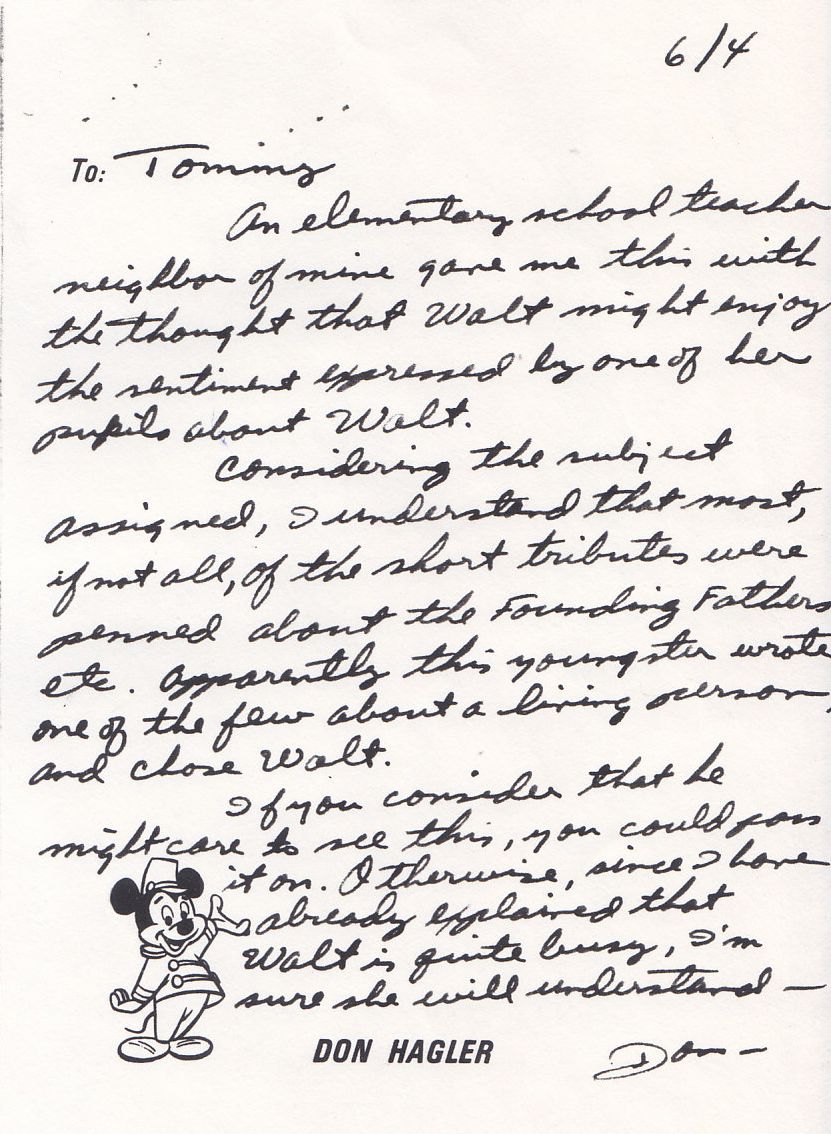 6/4
To: Tommy
An elementary school teacher
neighbor of mine gave me this with
the thought that Walt might enjoy
the sentiment expressed by one of her
pupils about Walt.
Considering the subject
assigned, I understand that most,
if not all, of the short tributes were
penned about the Founding Fathers
etc. Apparently this youngster wrote
one of the few about a living person,
and chose Walt.
If you consider that he
might care to see this, you could pass
it on. Otherwise, since I have
already explained that
Walt is quite busy, I'm
sure she will understand —
DON HAGLER
Don —